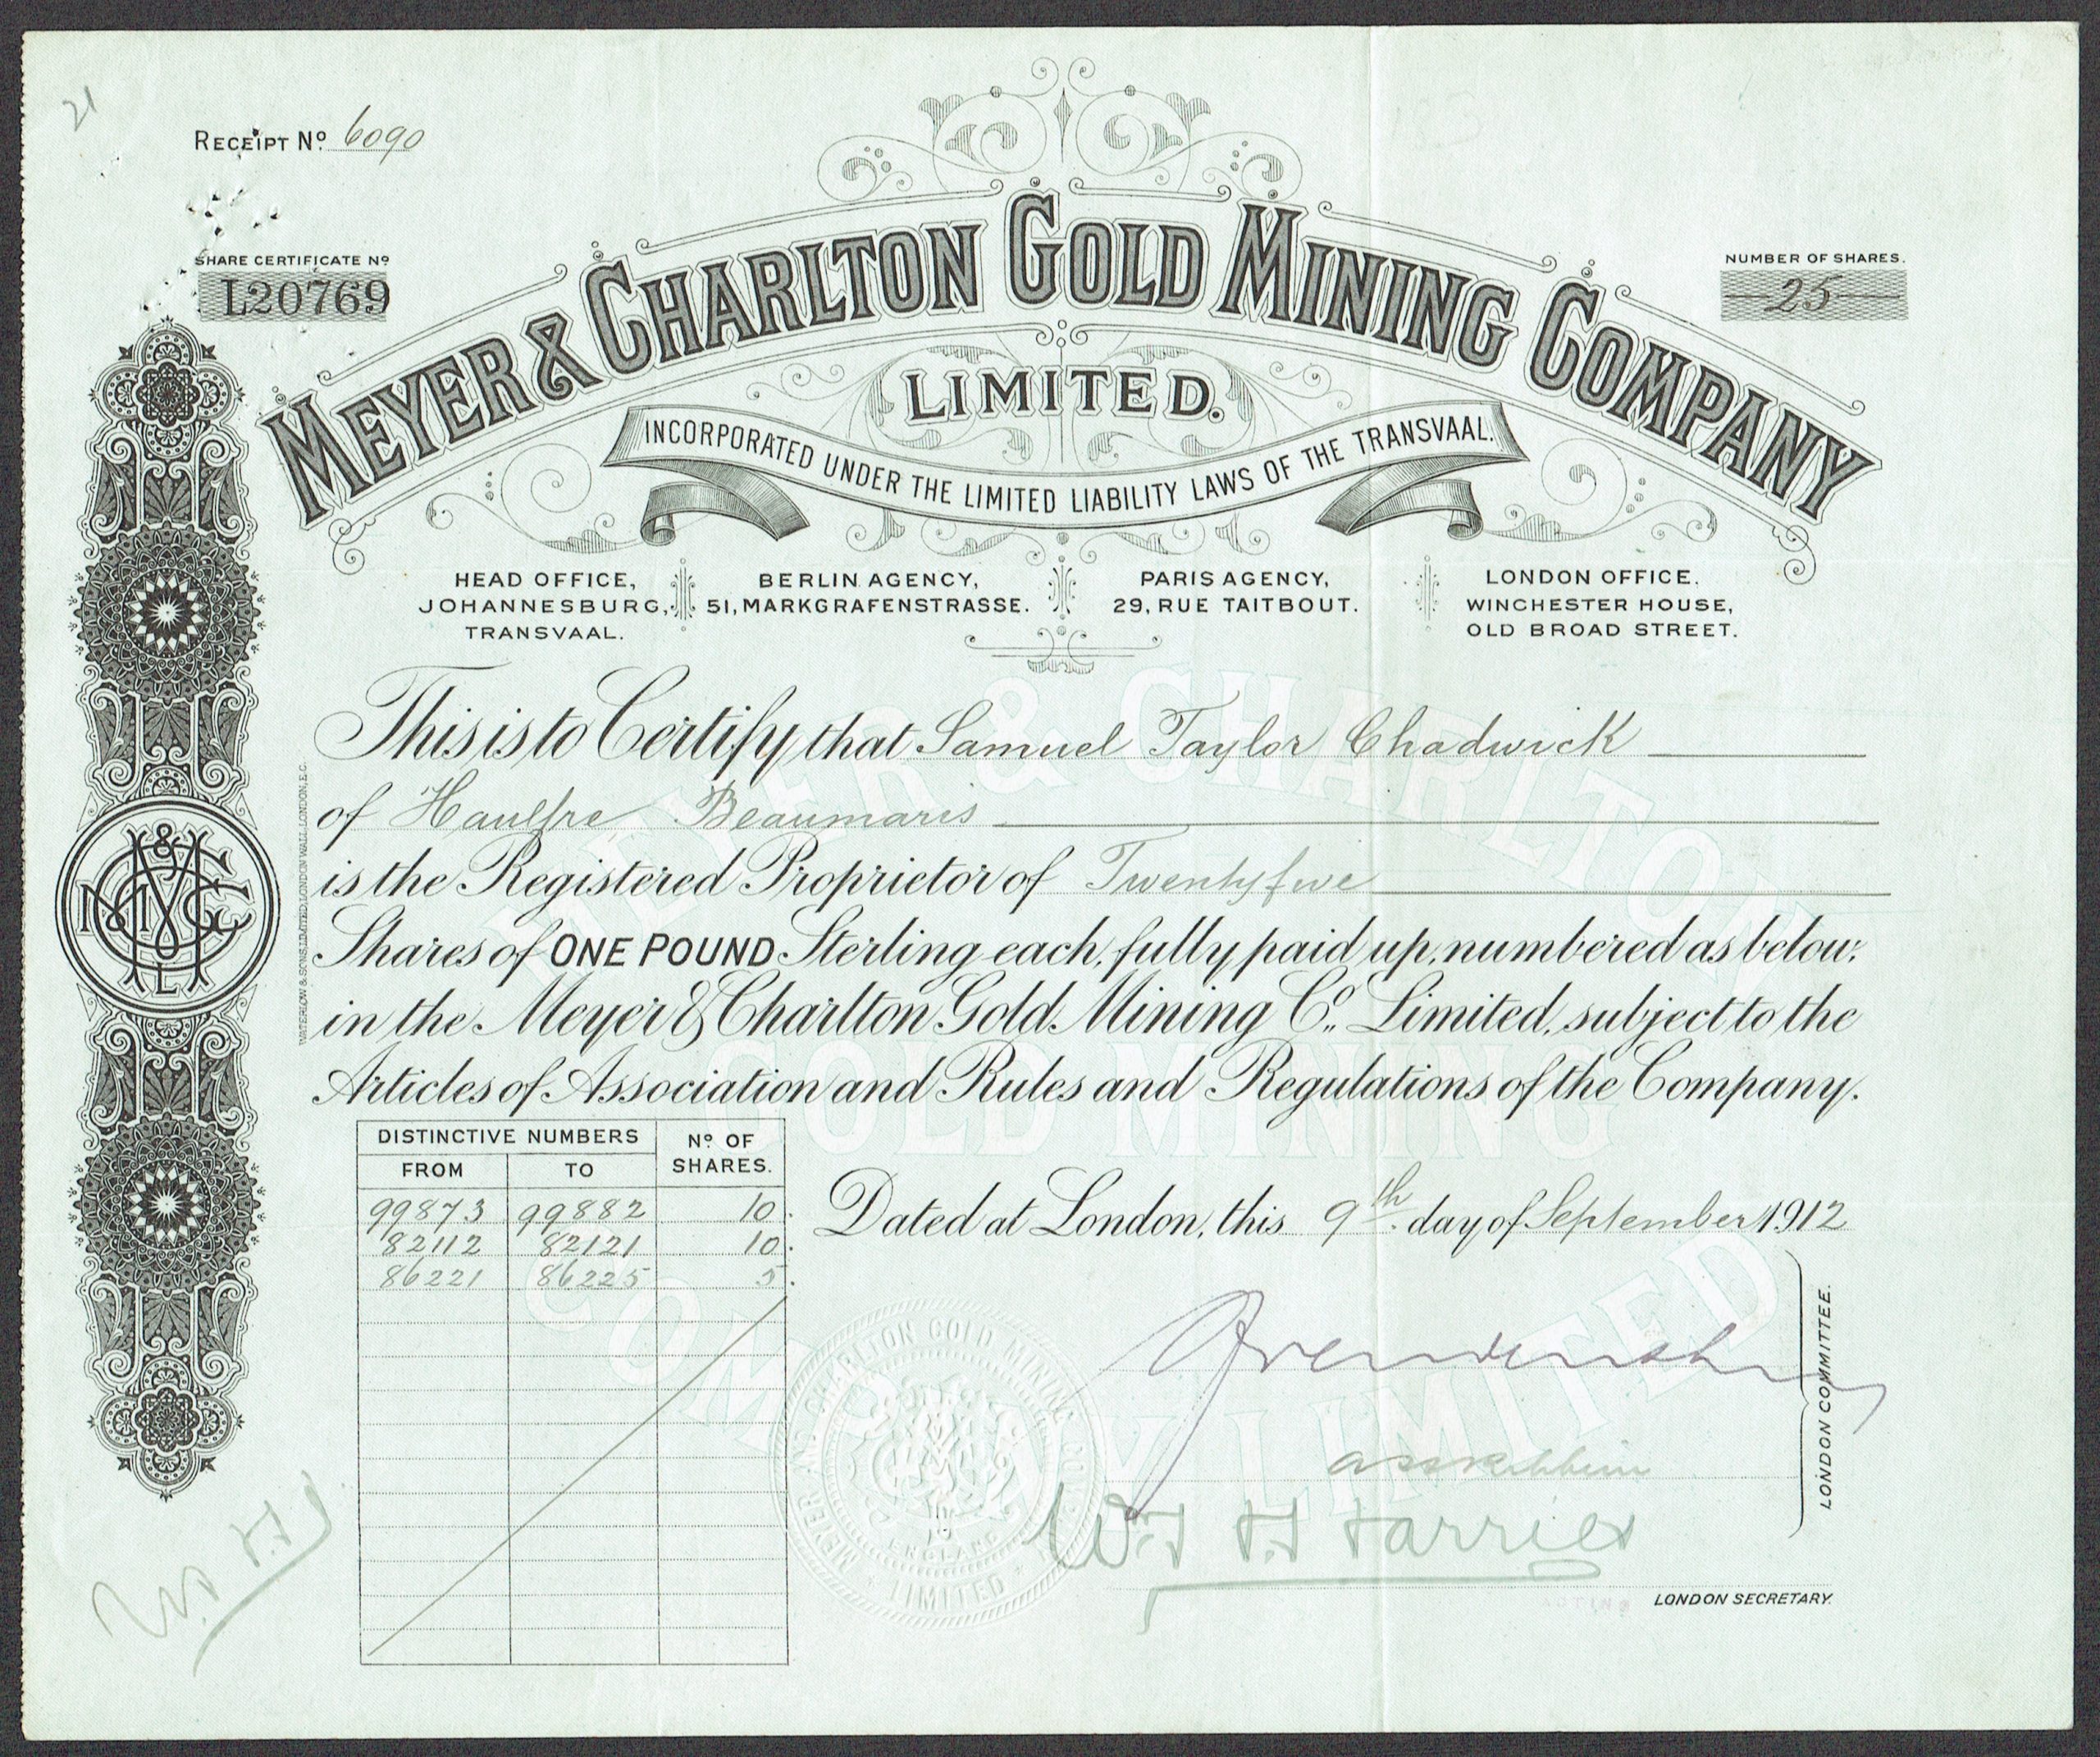 21
RECEIPT Nº 6090
SHARE CERTIFICATE Nº
L20769
NUMBER OF SHARES.
25
MEYER & CHARLTON GOLD MINING COMPANY
LIMITED.
INCORPORATED UNDER THE LIMITED LIABILITY LAWS OF THE TRANSVAAL.
HEAD OFFICE,
JOHANNESBURG,
TRANSVAAL.
BERLIN AGENCY,
51, MARKGRAFENSTRASSE.
PARIS AGENCY,
29, RUE TAITBOUT.
LONDON OFFICE.
WINCHESTER HOUSE,
OLD BROAD STREET.
This is to Certify that Samuel Taylor Chadwick
of Haulfre Beaumaris
is the Registered Proprietor of Twentyfive
Shares of ONE POUND Sterling each, fully paid up, numbered as below,
in the Meyer & Charlton Gold Mining Cº. Limited, subject to the
Articles of Association and Rules and Regulations of the Company.
WATERLOW & SONS LIMITED, LONDON WALL, LONDON, E.C.
M&CGMCL
DISTINCTIVE NUMBERS Nº OF SHARES.
FROM TO
99873 99882 10
82112 82121 10
86221 86225 5
Dated at London, this 9th day of September 1912
LONDON COMMITTEE.
W. H. Harries
ACTING LONDON SECRETARY.
MEYER AND CHARLTON GOLD MINING CO
LIMITED
ENGLAND
MEYER & CHARLTON
GOLD MINING
COMPANY LIMITED